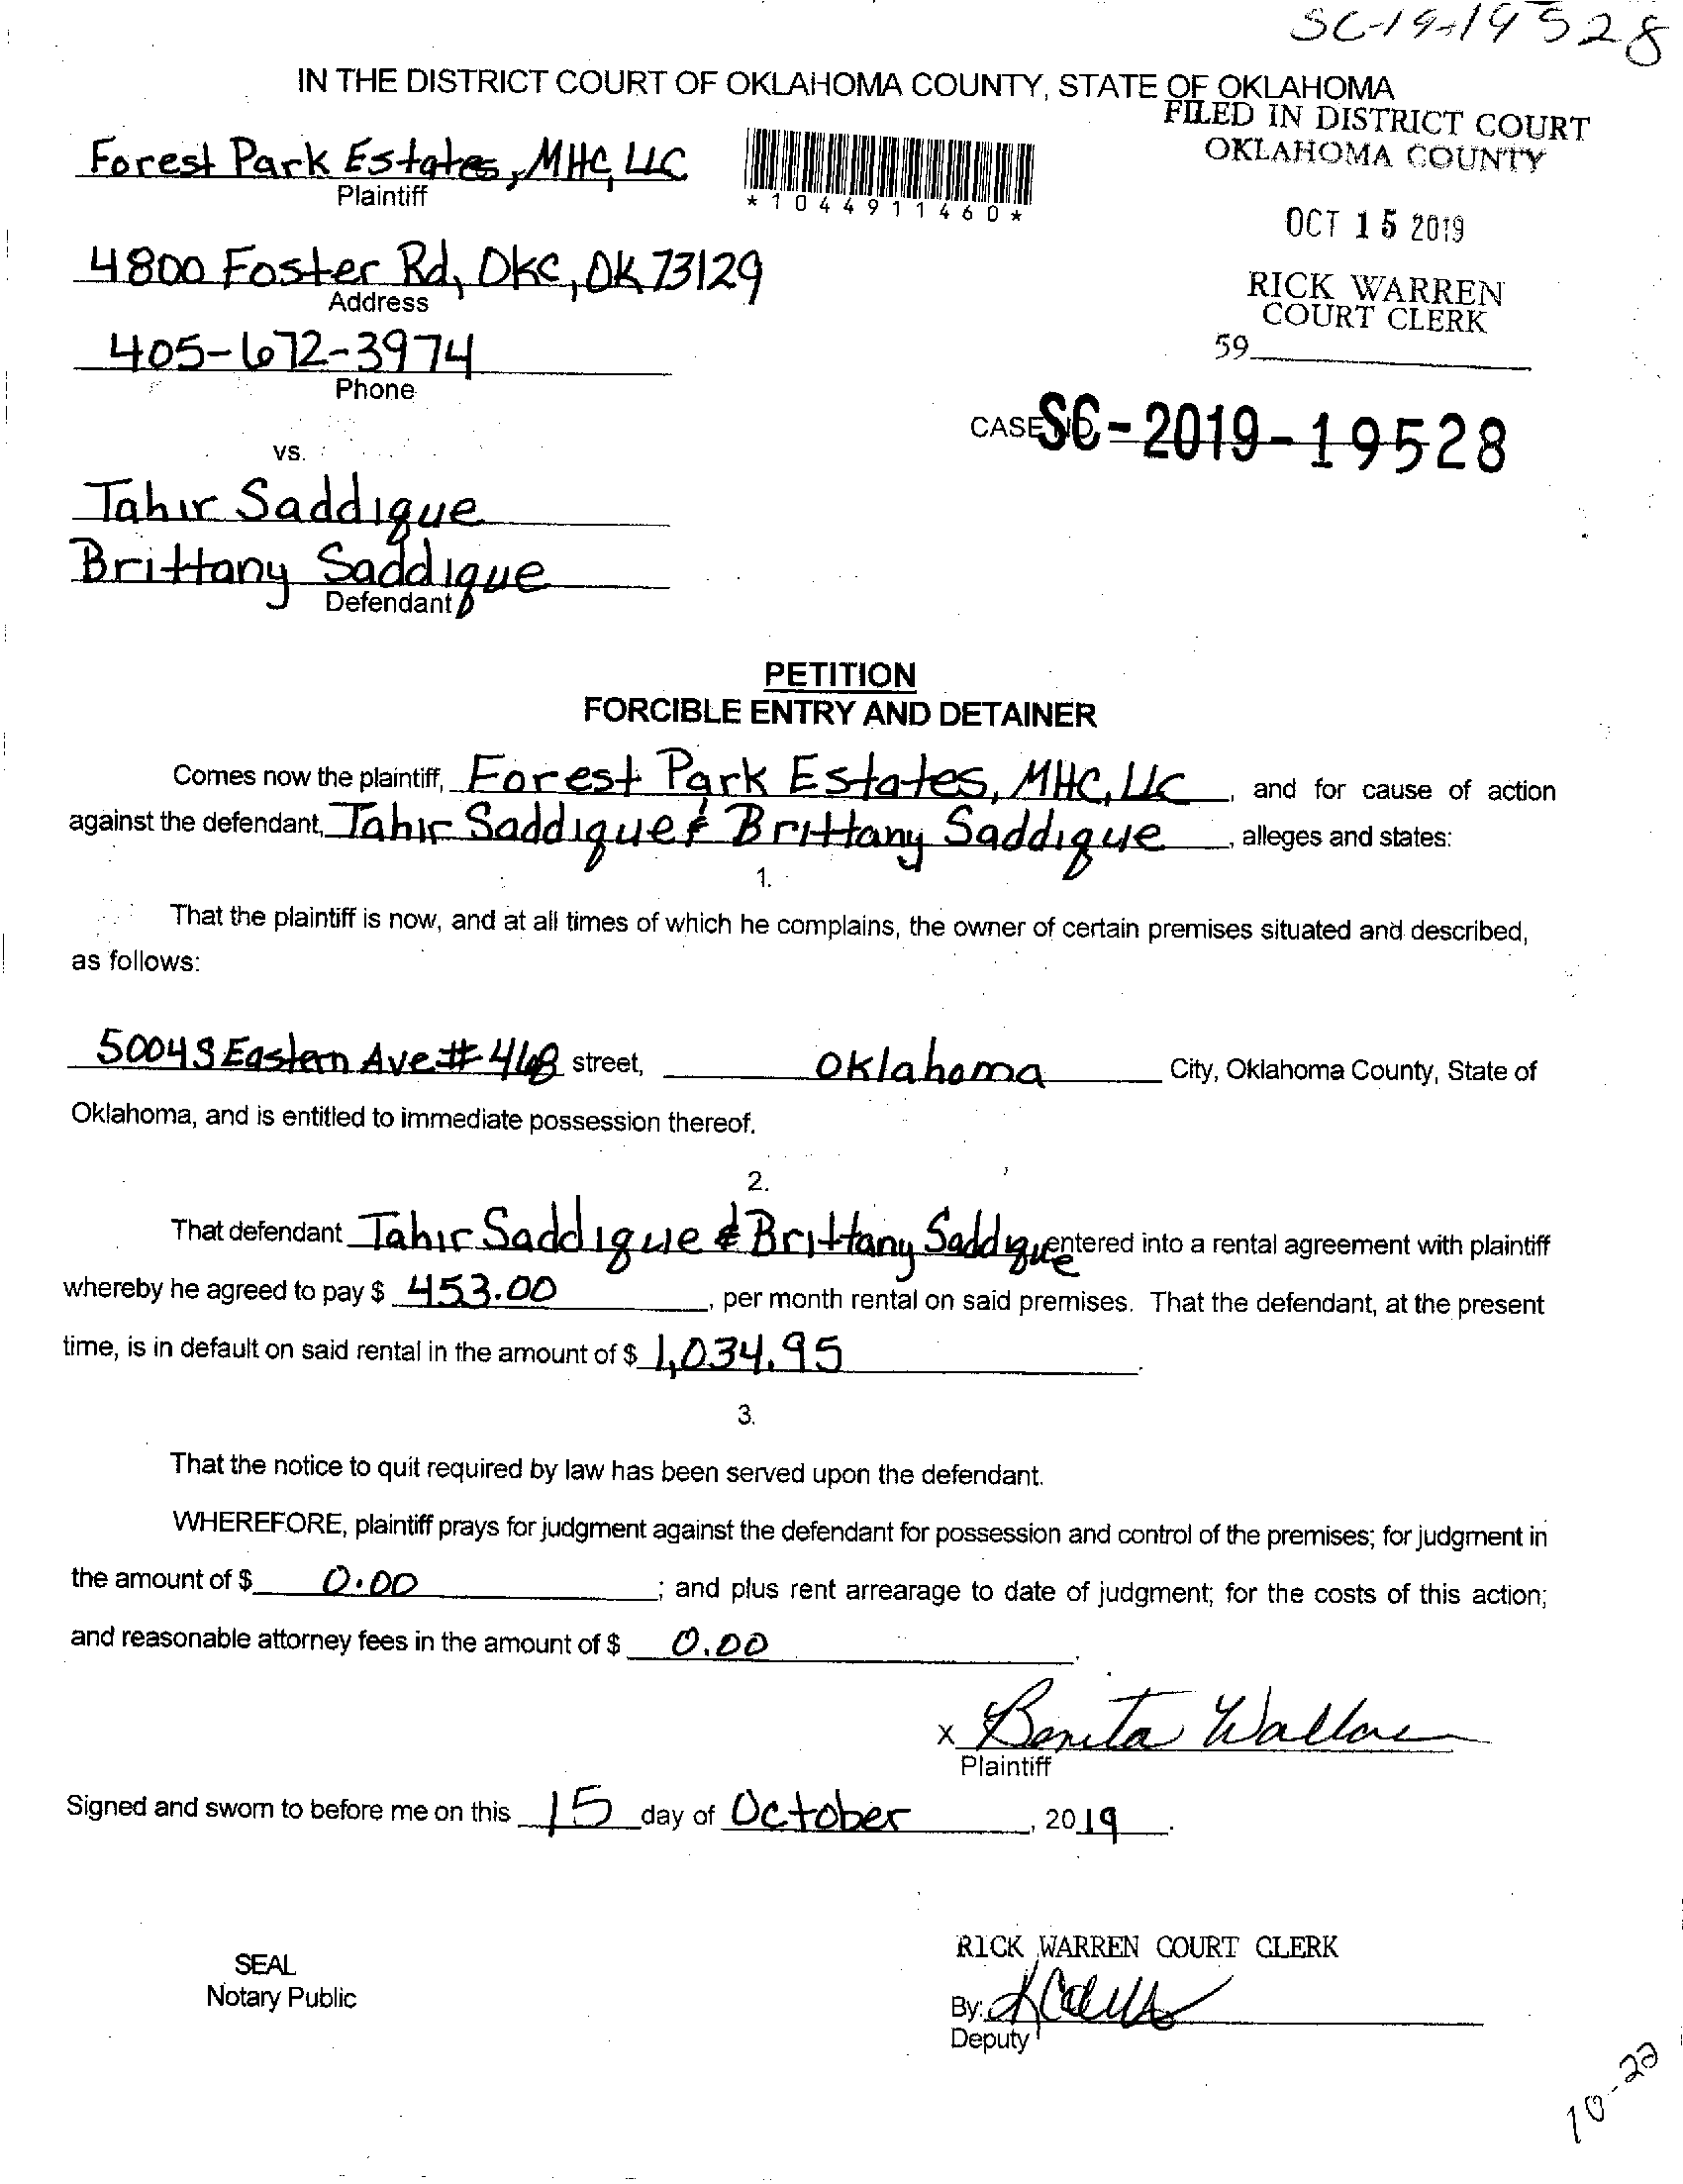 SC-19-19528
IN THE DISTRICT COURT OF OKLAHOMA COUNTY, STATE OF OKLAHOMA
FILED IN DISTRICT COURT
OKLAHOMA COUNTY
Forest Park Estates, MHC, LLC
Plaintiff
*1044911460*
OCT 15 2019
4800 Foster Rd, OKC, OK 73129
Address
RICK WARREN
COURT CLERK
405-672-3974
Phone
59
CASE NO. SC-2019-19528
VS.
Tahir Saddique
Brittany Saddique
Defendant
PETITION
FORCIBLE ENTRY AND DETAINER
Comes now the plaintiff, Forest Park Estates, MHC, LLC, and for cause of action
against the defendant, Tahir Saddique & Brittany Saddique, alleges and states:
1.
That the plaintiff is now, and at all times of which he complains, the owner of certain premises situated and described,
as follows:
5004 S Eastern Ave # 468 street, Oklahoma City, Oklahoma County, State of
Oklahoma, and is entitled to immediate possession thereof.
2.
That defendant Tahir Saddique & Brittany Saddique entered into a rental agreement with plaintiff
whereby he agreed to pay $ 453.00, per month rental on said premises. That the defendant, at the present
time, is in default on said rental in the amount of $ 1,034.95.
3.
That the notice to quit required by law has been served upon the defendant.
WHEREFORE, plaintiff prays for judgment against the defendant for possession and control of the premises; for judgment in
the amount of $ 0.00; and plus rent arrearage to date of judgment; for the costs of this action;
and reasonable attorney fees in the amount of $ 0.00.
X Benita Wallace
Plaintiff
Signed and sworn to before me on this 15 day of October, 2019.
RICK WARREN COURT CLERK
SEAL
Notary Public
By:
Deputy
10-22